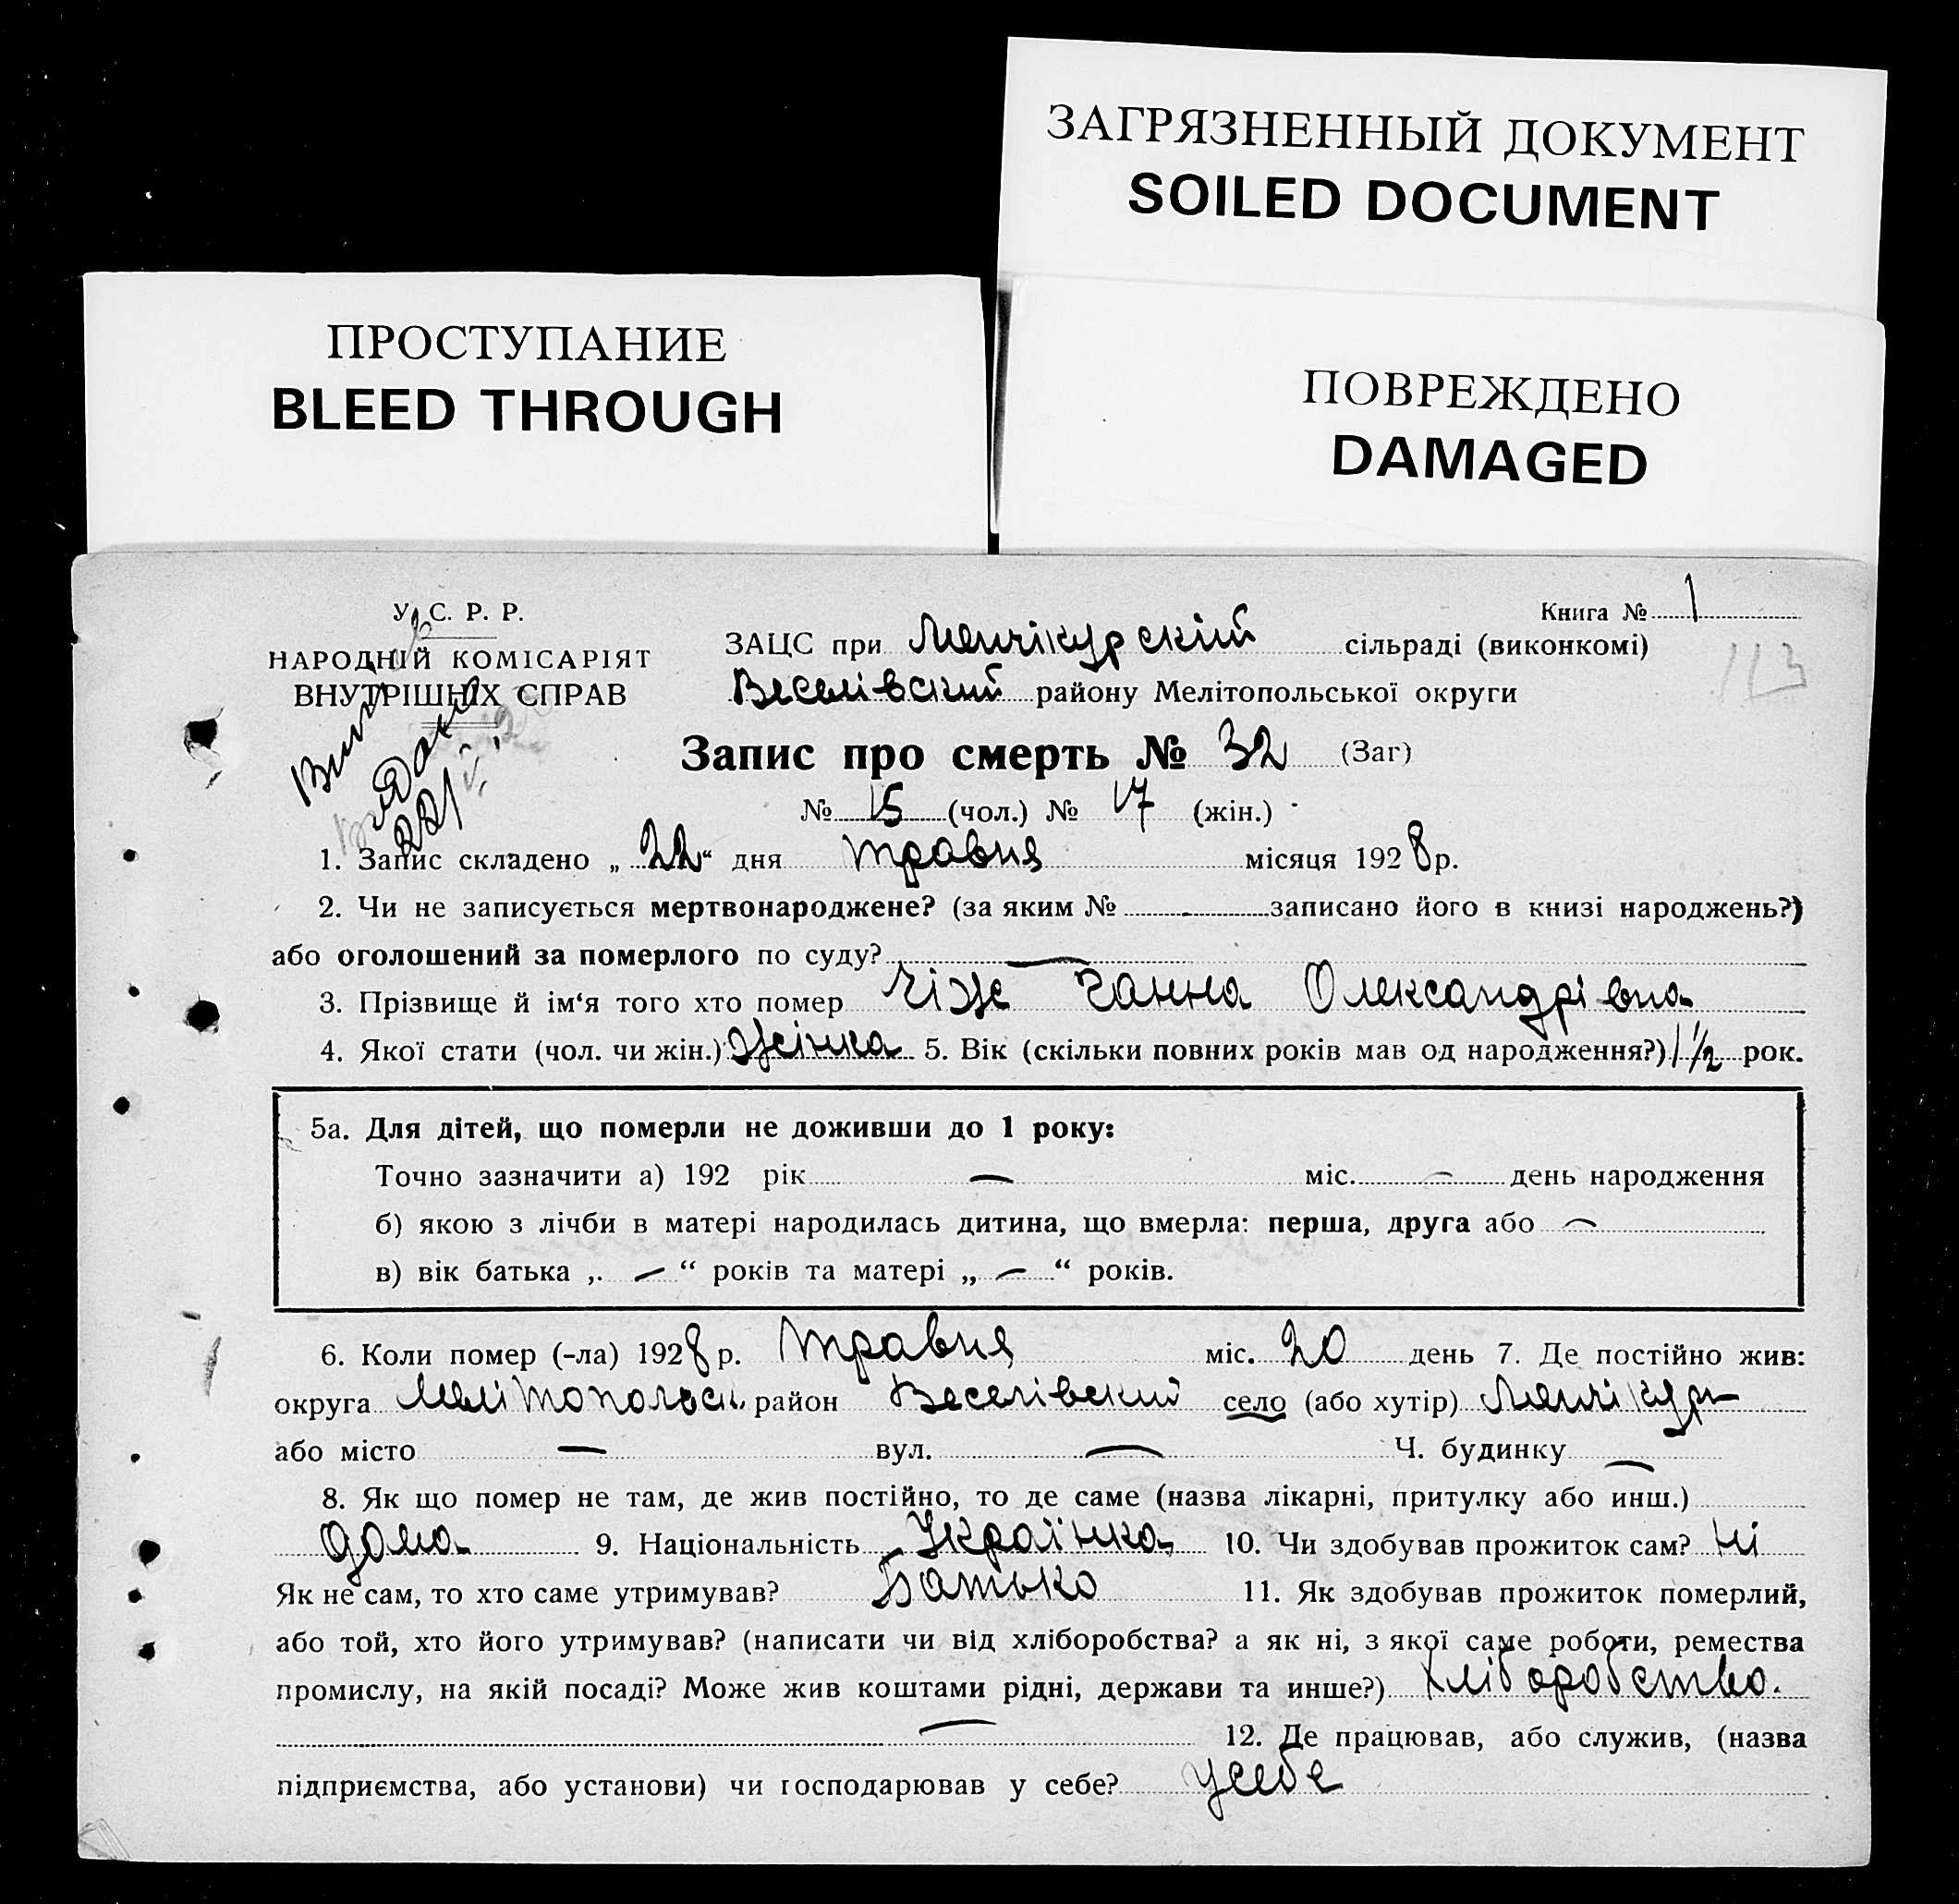 ЗАГРЯЗНЕННЫЙ ДОКУМЕНТ
SOILED DOCUMENT
ПРОСТУПАНИЕ
BLEED THROUGH
ПОВРЕЖДЕНО
DAMAGED
У. С. Р. Р.
НАРОДНІЙ КОМІСАРІЯТ
ВНУТРІШНІХ СПРАВ
Книга № 1
ЗАЦС при Менчікурскій сільраді (виконкомі)
Веселівский району Мелітопольської округи
113
Запис про смерть № 32 (Заг)
№ 15 (чол.) № 17 (жін.)
1. Запис складено „22“ дня травня місяця 1928 р.
2. Чи не записується мертвонароджене? (за яким № - записано його в книзі народжень?)
або оголошений за померлого по суду? —
3. Прізвище й ім‘я того хто помер Чіж Ганна Олександрівна
4. Якої статі (чол. чи жін.) Жінка 5. Вік (скільки повних років мав од народження?) 1 1/2 рок.
5а. Для дітей, що померли не доживши до 1 року:
Точно зазначити а) 192 рік — міс. — день народження
б) якою з лічби в матері народилась дитина, що вмерла: перша, друга або —
в) вік батька „ — “ років та матері „ — “ років.
6. Коли помер (-ла) 1928 р. травня міс. 20 день 7. Де постійно жив:
округа Мелітопольськ. район Веселівский село (або хутір) Менчікур
або місто — вул. — Ч. будинку —
8. Як що помер не там, де жив постійно, то де саме (назва лікарні, притулку або инш.)
дома 9. Національність Українка 10. Чи здобував прожиток сам? Ні
Як не сам, то хто саме утримував? Батько 11. Як здобував прожиток померлий,
або той, хто його утримував? (написати чи від хліборобства? а як ні, з якої саме роботи, ремества
промислу, на якій посаді? Може жив коштами рідні, держави та инше?) Хліборобство.
— 12. Де працював, або служив, (назва
підприємства, або установи) чи господарював у себе? усебе